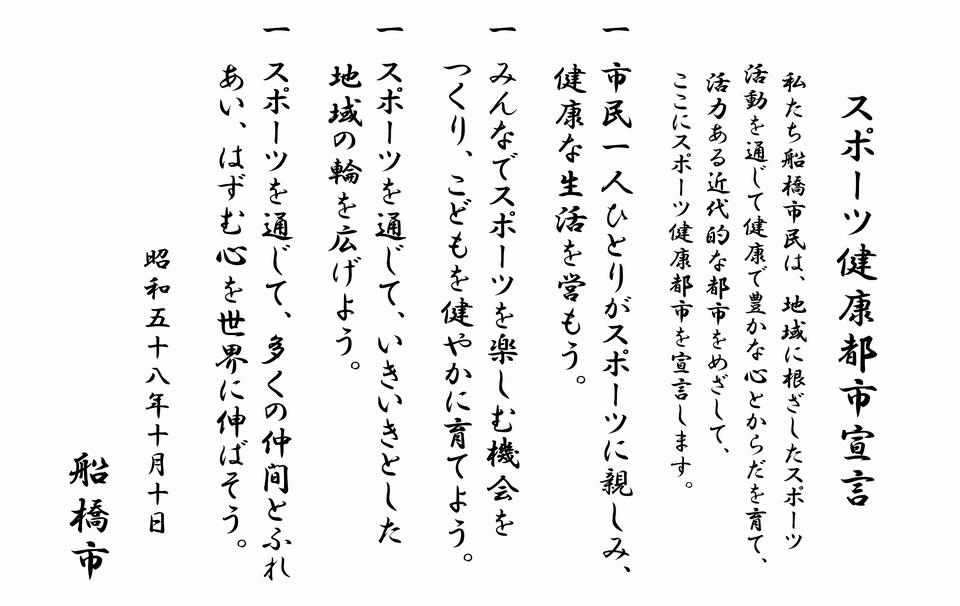 スポーツ健康都市宣言
私たち船橋市民は、地域に根ざしたスポーツ
活動を通じて健康で豊かな心とからだを育て、
活力ある近代的な都市をめざして、
ここにスポーツ健康都市を宣言します。
一 市民一人ひとりがスポーツに親しみ、
健康な生活を営もう。
一 みんなでスポーツを楽しむ機会を
つくり、こどもを健やかに育てよう。
一 スポーツを通じて、いきいきとした
地域の輪を広げよう。
一 スポーツを通じて、多くの仲間とふれ
あい、はずむ心を世界に伸ばそう。
昭和五十八年十月十日
船橋市